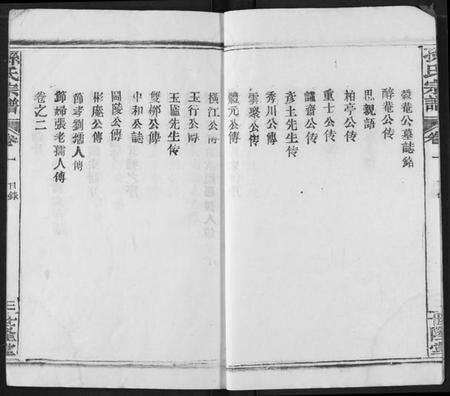 孫氏宗譜 卷一
穀菴公墓誌銘
醉菴公傳
思親語
柏亭公傳
重士公傳
謹齋公傳
彥士先生傳
秀川公傳
雲聚公傳
體元公傳
橫江公傳
玉行公傳
玉崑先生傳
雙柳公傳
中和公誌
岡陵公傳
彬庵公傳
節孝劉孺人傳
節婦張老孺人傳
卷之二
孫氏宗譜 卷一 目錄 三